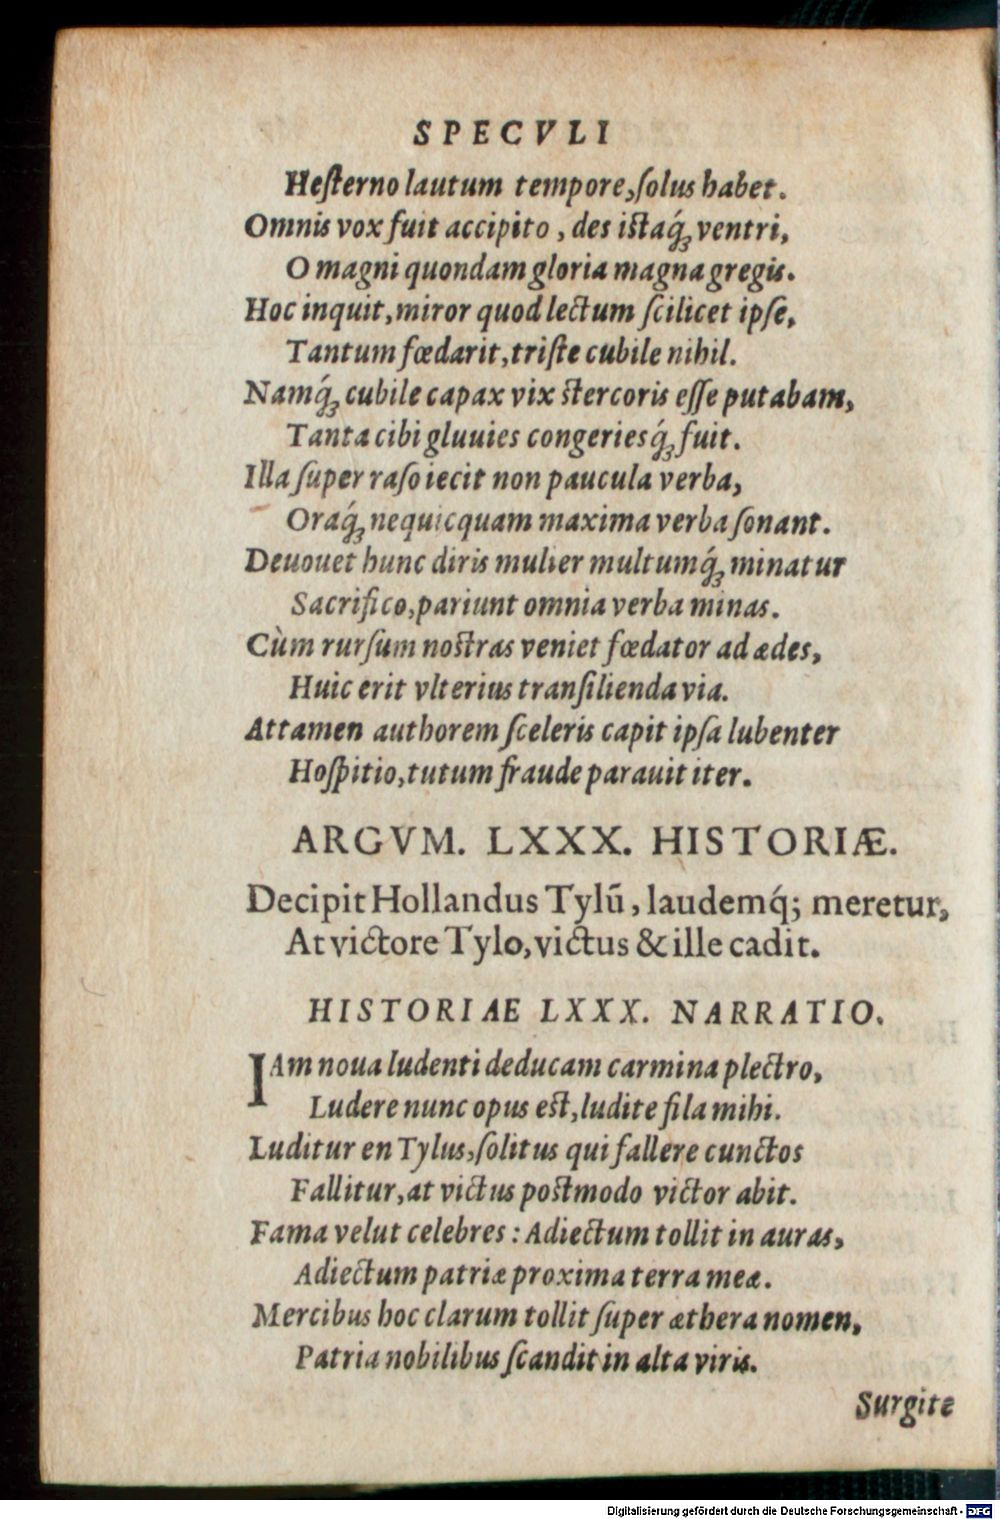 SPECVLI
Heſterno lautum tempore, ſolus habet.
Omnis vox fuit accipito, des istaq́; ventri,
O magni quondam gloria magna gregis.
Hoc inquit, miror quod lectum ſcilicet ipſe,
Tantum fœdarit, triſte cubile nihil.
Namq́; cubile capax vix stercoris eſſe putabam,
Tanta cibi gluuies congeriesq́; fuit.
Illa ſuper raſo iecit non paucula verba,
Oraq́; nequicquam maxima verba ſonant.
Deuouet hunc diris mulier multumq́; minatur
Sacrifico, pariunt omnia verba minas.
Cùm rurſum nostras veniet fœdator ad ædes,
Huic erit vlterius tranſilienda via.
Attamen authorem ſceleris capit ipſa lubenter
Hoſpitio, tutum fraude parauit iter.
ARGVM. LXXX. HISTORIÆ.
Decipit Hollandus Tylū, laudemq́; meretur,
At victore Tylo, victus & ille cadit.
HISTORIAE LXXX. NARRATIO.
IAm noua ludenti deducam carmina plectro,
Ludere nunc opus est, ludite fila mihi.
Luditur en Tylus, ſolitus qui fallere cunctos
Fallitur, at victus postmodo victor abit.
Fama velut celebres: Adiectum tollit in auras,
Adiectum patriæ proxima terra meæ.
Mercibus hoc clarum tollit ſuper æthera nomen,
Patria nobilibus ſcandit in alta viris.
Surgite
Digitalisierung gefördert durch die Deutsche Forschungsgemeinschaft - DFG